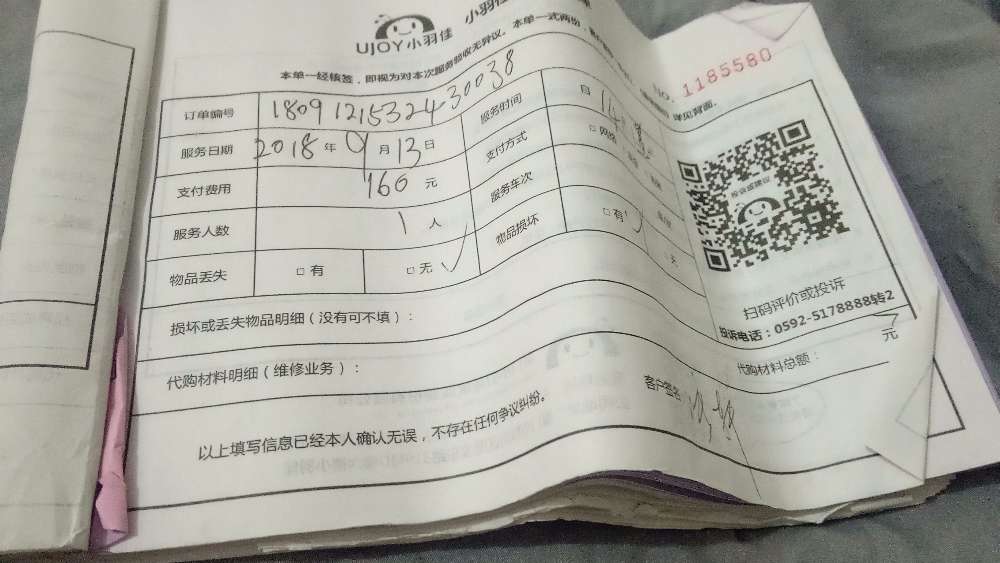 UJOY小羽佳 小羽佳
NO. 1185580
本单一经核签，即视为对本次服务验收无异议。本单一式两份， 详见背面。
订单编号 180912153243 0038 服务时间
服务日期 2018年9月13日 支付方式 □网络
支付费用 160元 服务车次
服务人数 1人 物品损坏 □有
物品丢失 □有 □无√
投诉或建议
扫码评价或投诉
投诉电话：0592-5178888转2
损坏或丢失物品明细（没有可不填）：
代购材料明细（维修业务）： 代购材料总额： 元
以上填写信息已经本人确认无误，不存在任何争议纠纷。 客户签名